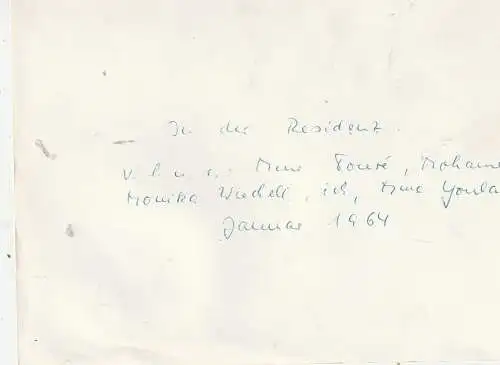 In der Residenz.
v. l. n. r.: Mme Touré, Mohame
Monika Wiedell, ich, Mme Youla
Januar 1964